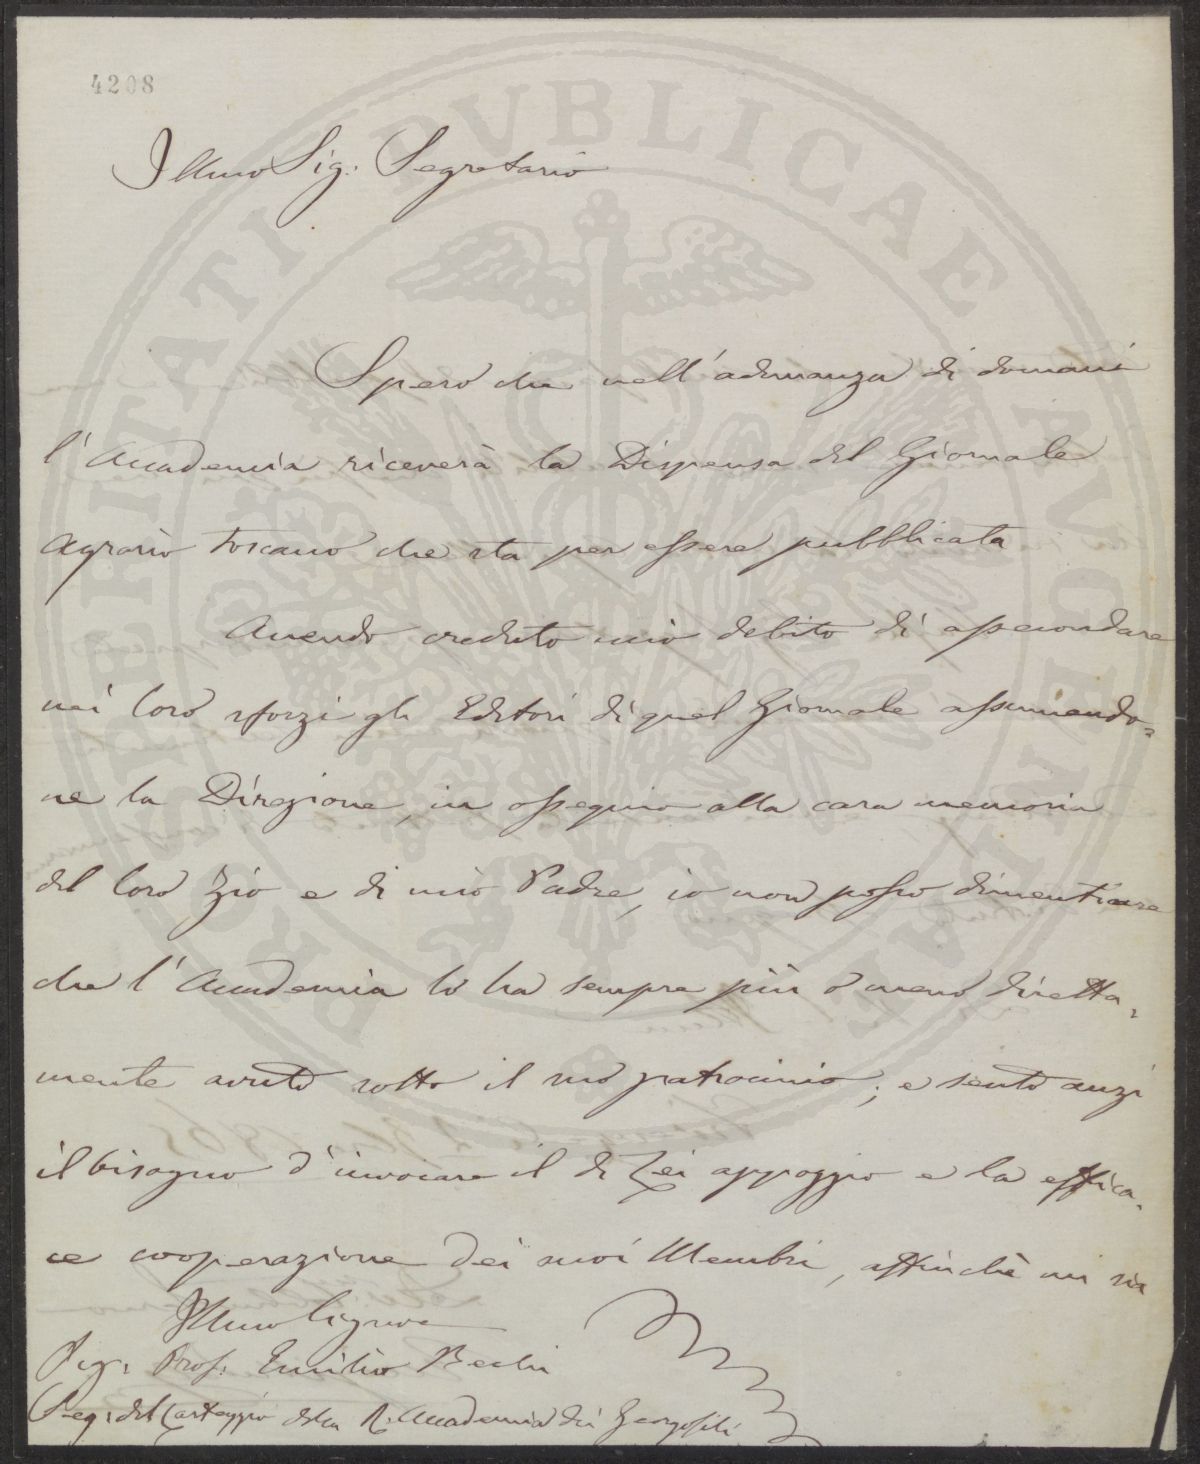 4208
Illmo Sig. Segretario
Spero che nell'adunanza di domani
l'Accademia riceverà la Dispensa del Giornale
agrario toscano che sta per essere pubblicata
Avendo creduto mio debito di assecondare
nei loro sforzi gli Editori di quel Giornale assumendo=
ne la Direzione, in ossequio alla cara memoria
del loro Zio e di mio Padre, io non posso dimenticare
che l'Accademia lo ha sempre più o meno diretta=
mente avuto sotto il suo patrocinio; e sento anzi
il bisogno d'invocare il di Lei appoggio e la effica=
ce cooperazione dei suoi Membri, affinchè mi sia
Illmo Signore
Sig. Prof. Emilio Bechi
Seg. del Carteggio della R. Accademia dei Georgofili
PROSPERITATI PVBLICAE AVGENDAE